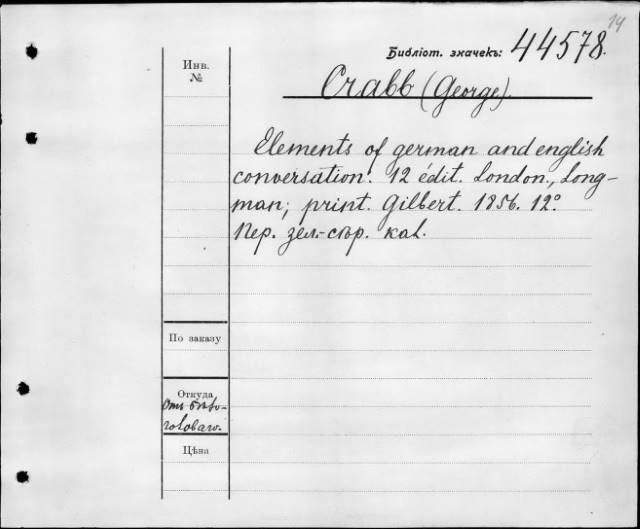 14
Библіот. значекъ: 44578.
Инв.
№
Crabb (George).
Elements of german and english
conversation. 12 édit. London, Long-
man; print. Gilbert. 1856. 12º
Пер. зел.-сѣр. кал.
По заказу
Откуда
Цѣна